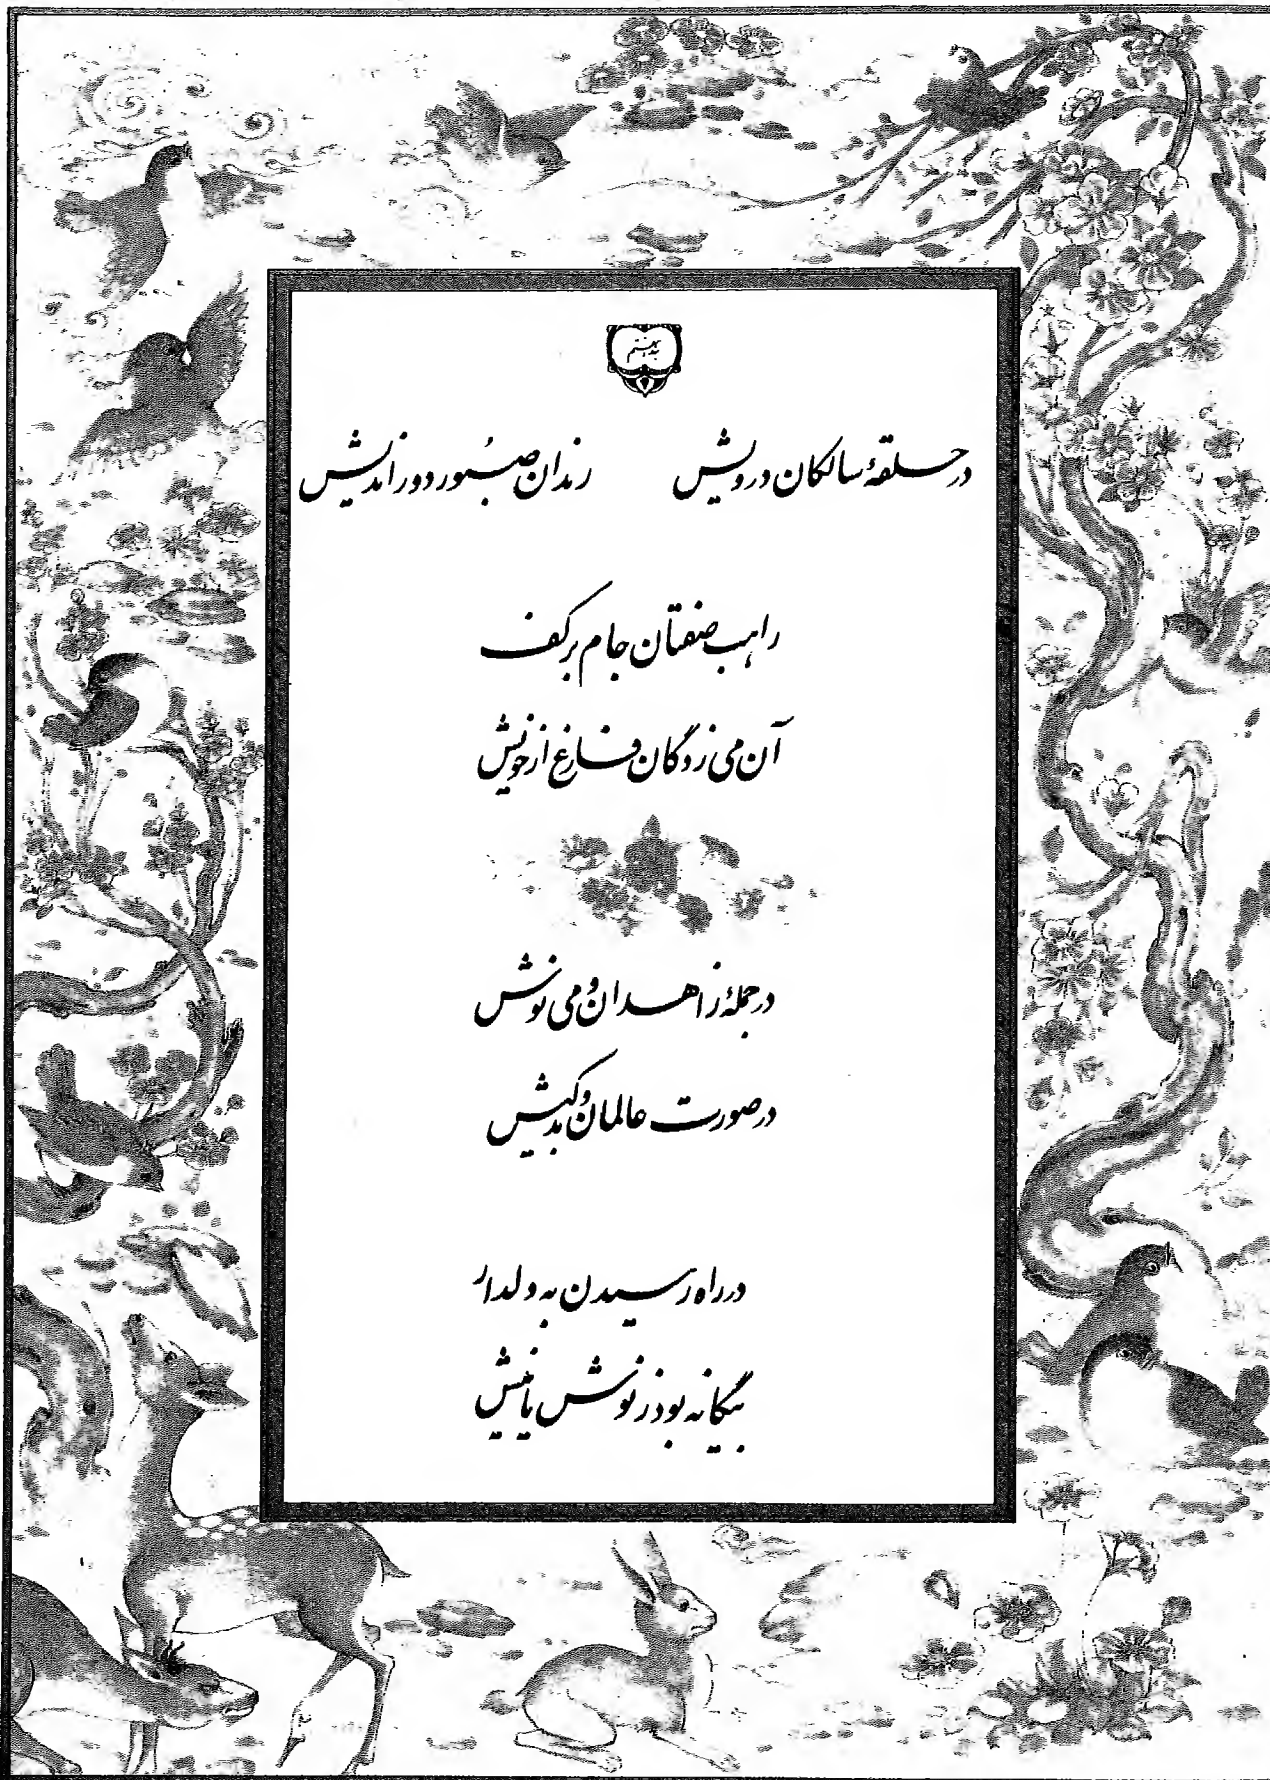 بند هشتم
در حلقهٔ سالکان درویش رندان صبور دوراندیش
راهب صفتان جام بر کف
آن می زدگان فارغ از خویش
در جملهٔ زاهدان و می نوش
در صورت عالمان و بدکیش
در راه رسیدن به دلدار
بیگانه بود ز نوش یا نیش